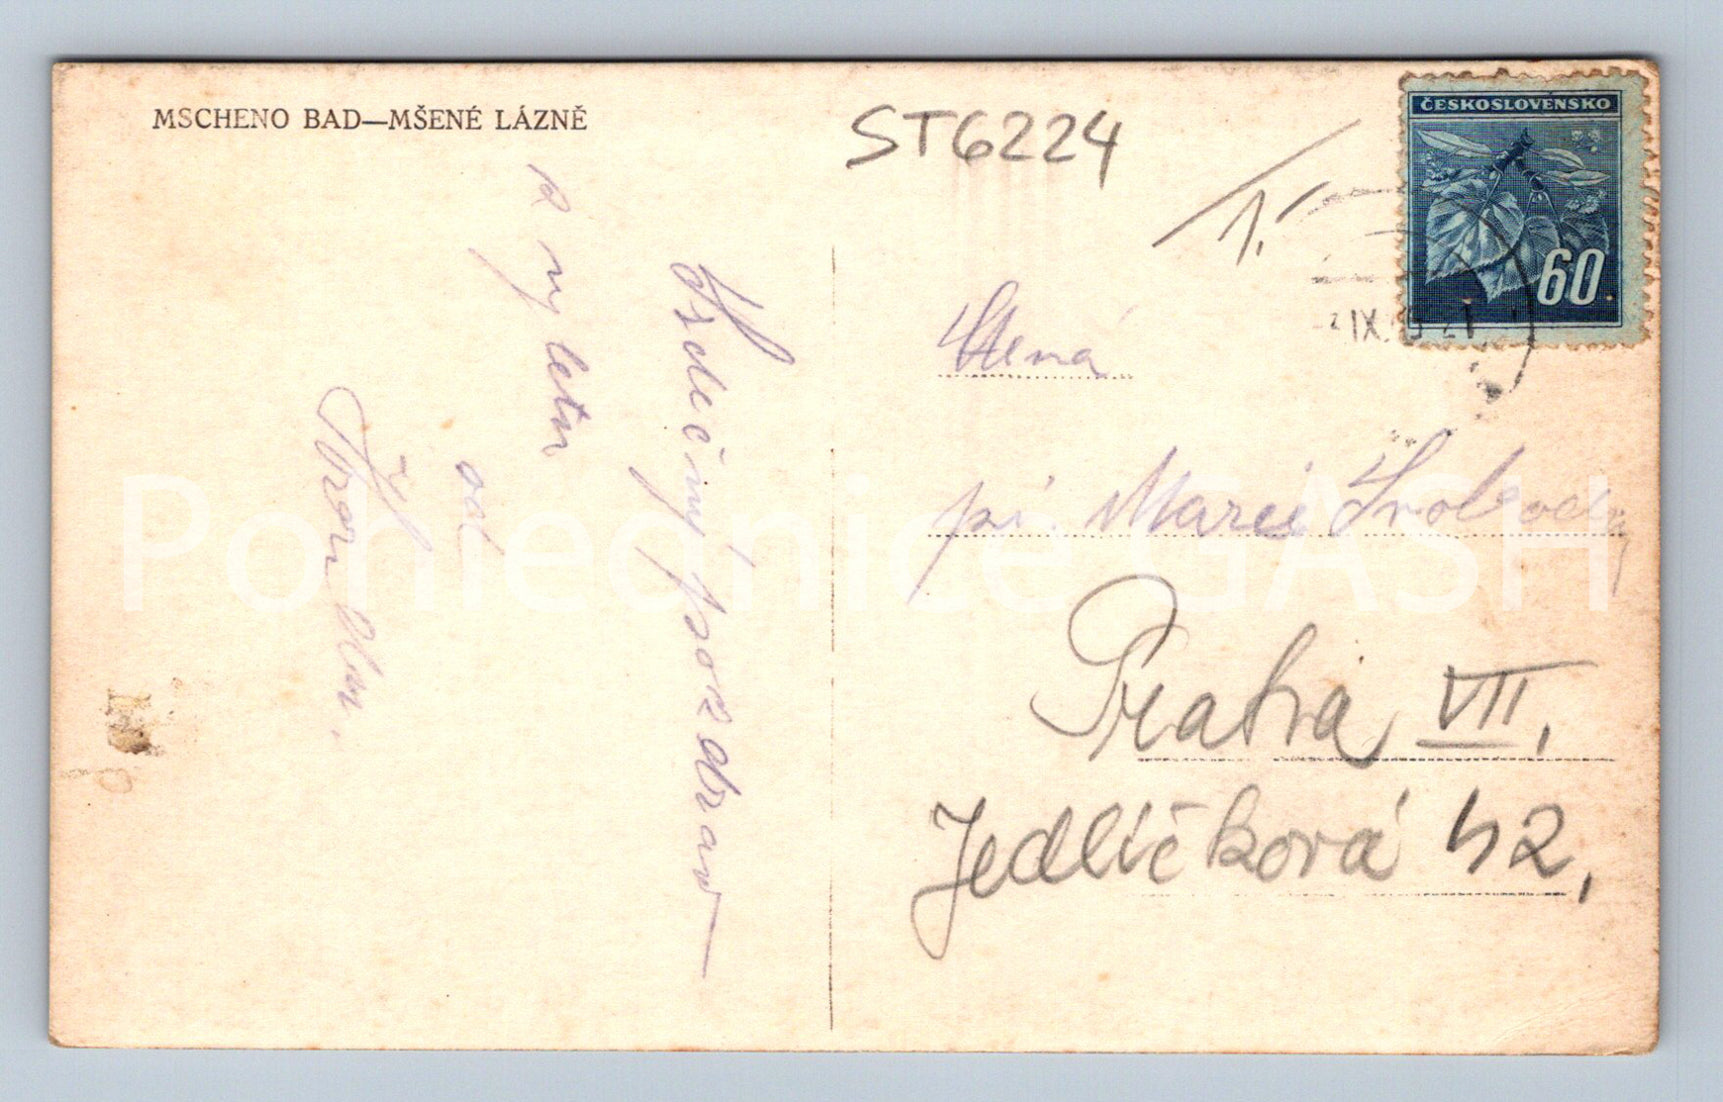 MSCHENO BAD—MŠENÉ LÁZNĚ
ST6224
1.
ČESKOSLOVENSKO
60
IX.
Srdečný pozdrav
z vyletu
od
Ctená
pí. Marie
Praha VII,
Jedličková 42,
Pohlednice GASH